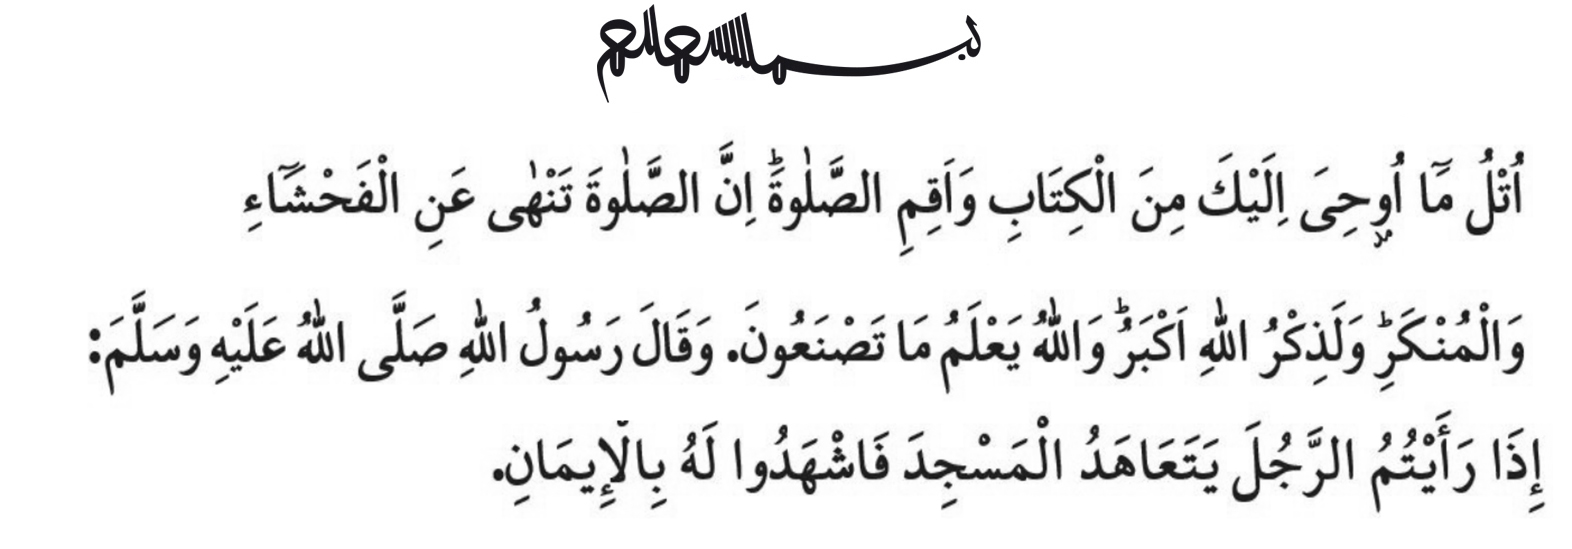 بسم الله الرحمن الرحيم
اُتْلُ مَٓا اُو۫حِىَ اِلَيْكَ مِنَ الْكِتَابِ وَاَقِمِ الصَّلٰوةَۜ اِنَّ الصَّلٰوةَ تَنْهٰى عَنِ الْفَحْشَٓاءِ
وَالْمُنْكَرِۜ وَلَذِكْرُ اللّٰهِ اَكْبَرُۜ وَاللّٰهُ يَعْلَمُ مَا تَصْنَعُونَ. وَقَالَ رَسُولُ اللّٰهِ صَلَّى اللّٰهُ عَلَيْهِ وَسَلَّمَ:
إِذَا رَأَيْتُمُ الرَّجُلَ يَتَعَاهَدُ الْمَسْجِدَ فَاشْهَدُوا لَهُ بِالْإِيمَانِ.